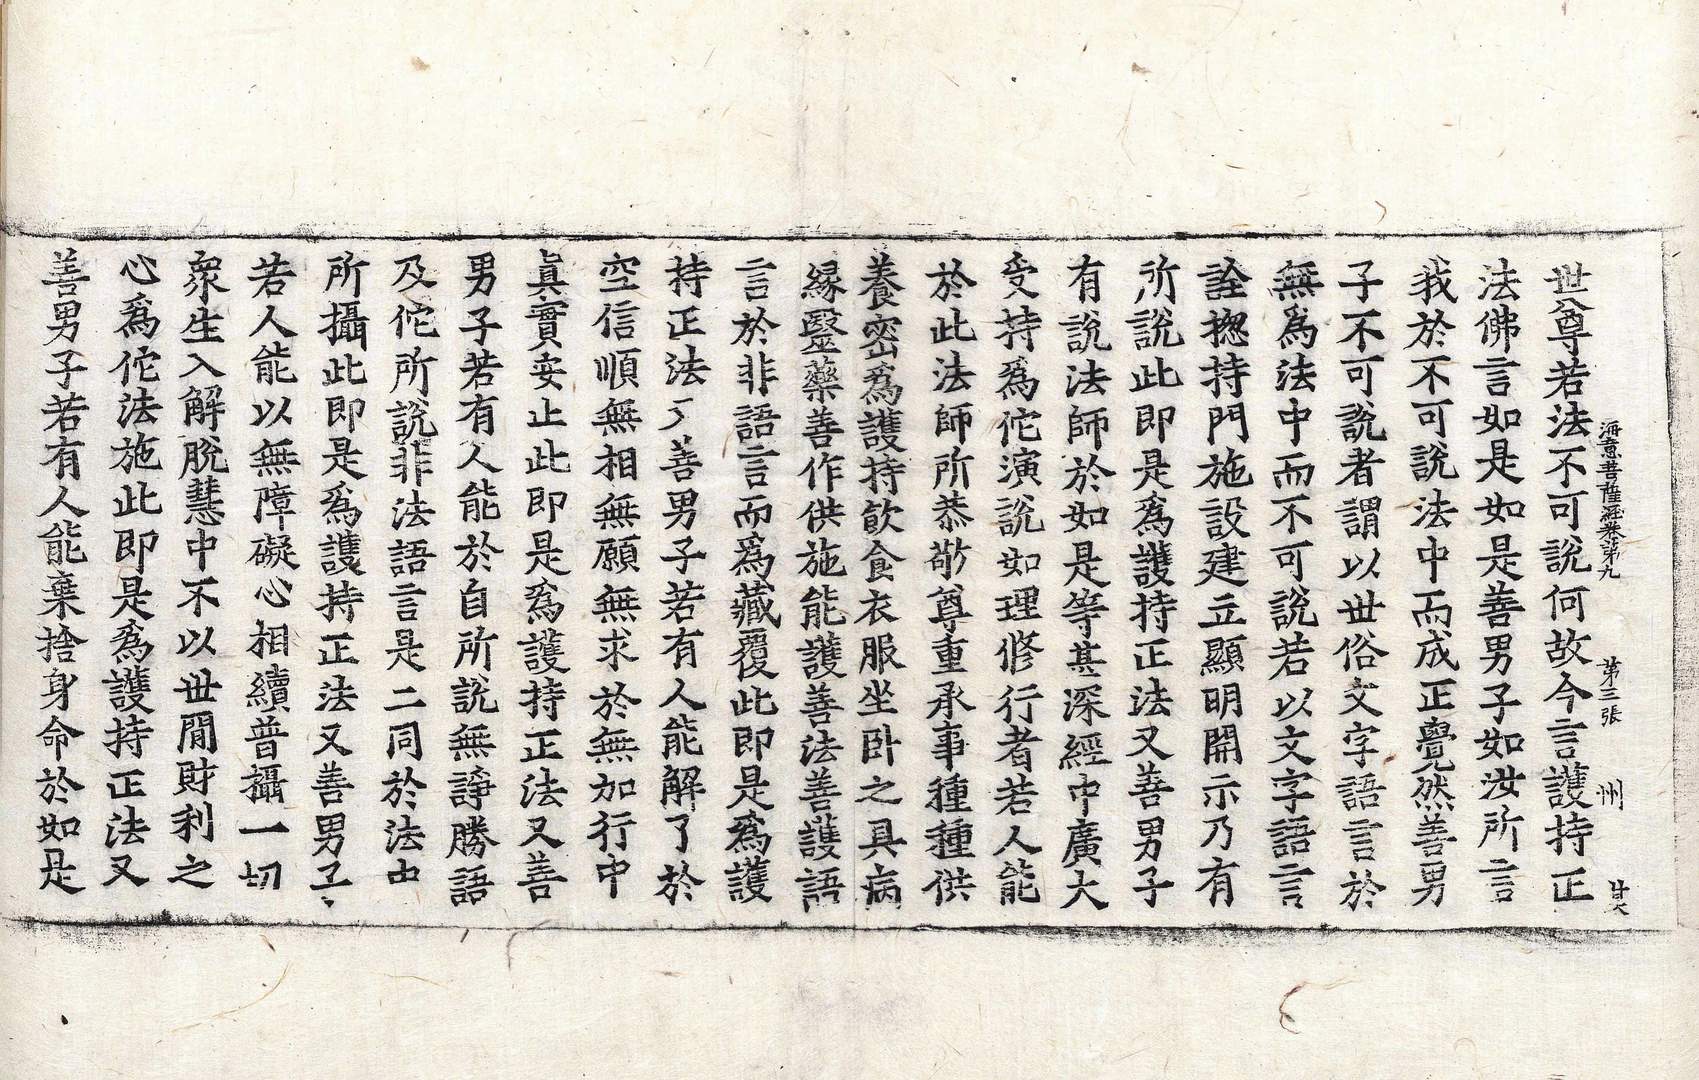 海意菩薩經卷第九 第三張 州
世尊若法不可說何故今言護持正
法佛言如是如是善男子如汝所言
我於不可說法中而成正覺然善男
子不可說者謂以世俗文字語言於
無爲法中而不可說若以文字語言
詮揔持門施設建立顯明開示乃有
所說此即是爲護持正法又善男子
有說法師於如是等甚深經中廣大
受持爲佗演說如理修行者若人能
於此法師所恭敬尊重承事種種供
養密爲護持飮食衣服坐卧之具病
緣毉藥善作供施能護善法善護語
言於非語言而爲藏覆此即是爲護
持正法又善男子若有人能解了於
空信順無相無願無求於無加行中
眞實安止此即是爲護持正法又善
男子若有人能於自所說無諍勝語
及佗所說非法語言是二同於法中
所攝此即是爲護持正法又善男子
若人能以無障礙心相續普攝一切
衆生入解脫慧中不以世間財利之
心爲佗法施此即是爲護持正法又
善男子若有人能棄捨身命於如是